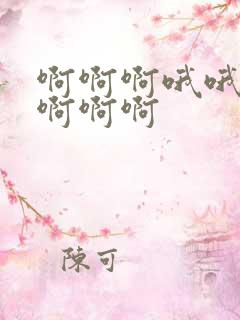 啊啊啊哦哦
啊啊啊
陳可